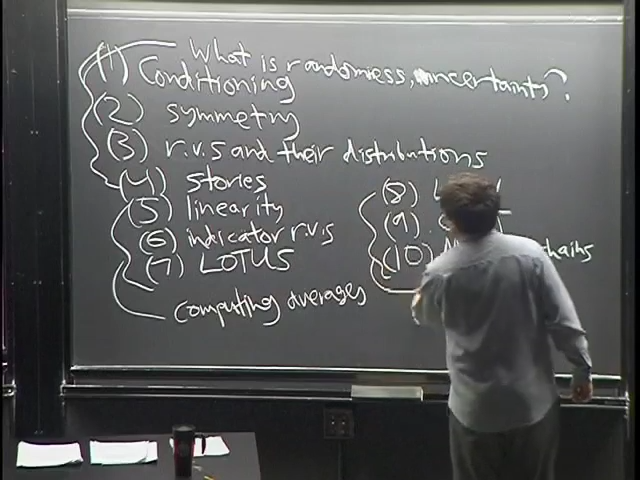 What is randomness, uncertainty?
(1) Conditioning
(2) symmetry
(3) r.v.s and their distributions
(4) stories
(5) linearity
(6) indicator r.v.s
(7) LOTUS
computing averages
(8) L
(9)
(10) chains